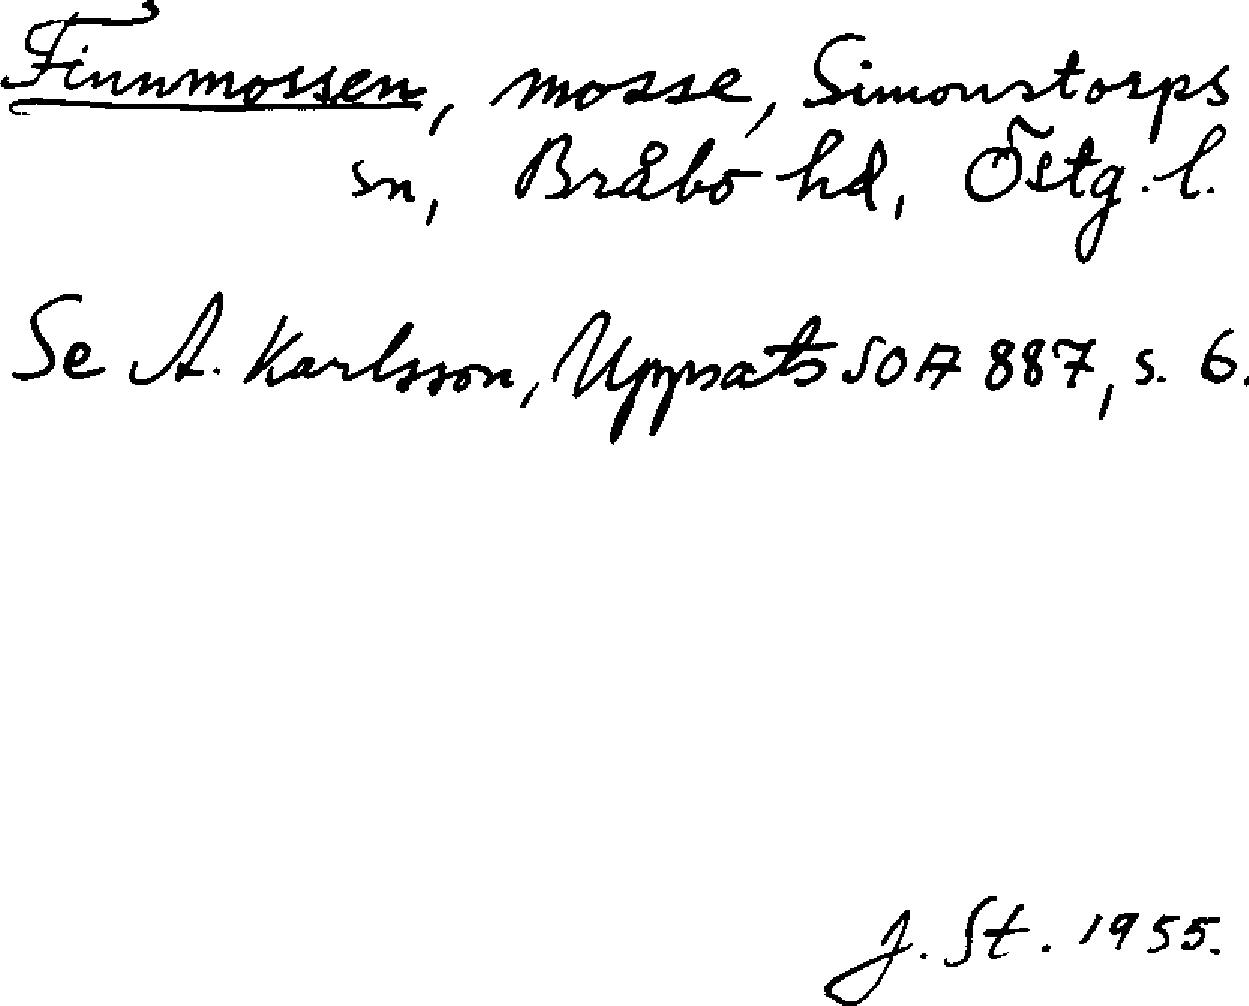 Finnmossen, mosse, Simonstorps
sn, Bråbo hd, Östg. l.
Se A. Karlsson, Uppsats SOA 887, s. 6.
J. St. 1955.